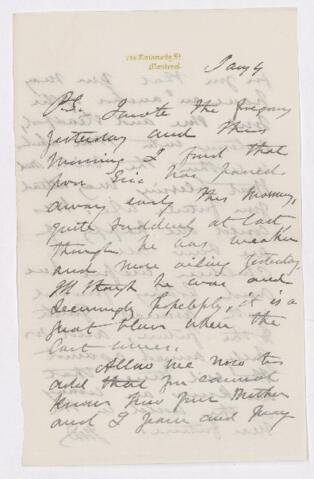 University St
Montreal
Jany 4
P.S. I wrote the foregoing
yesterday and this
morning I find that
poor Eric has passed
away early this morning,
quite suddenly at last
though he was weaker
and more ailing yesterday.
Although he was and
seemingly hopeless, it is a
great blow when the
last comes.
Allow me now to
add that you cannot
know how your Mother
and I yearn and pray